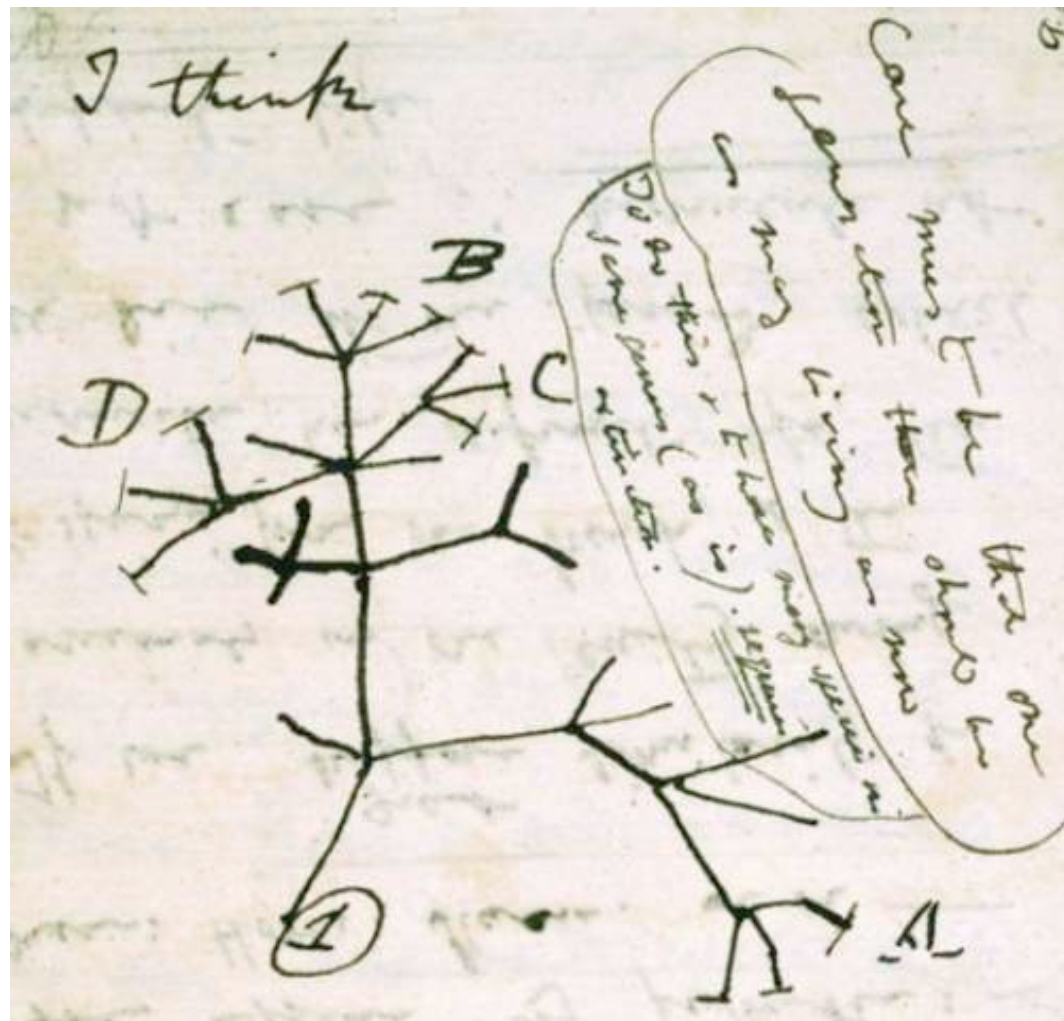 I think
Case must be that one
generation then should be
as many living as now
To do this & to have many species in
same genus (as is). requires
extinction.
B
D
C
A
1